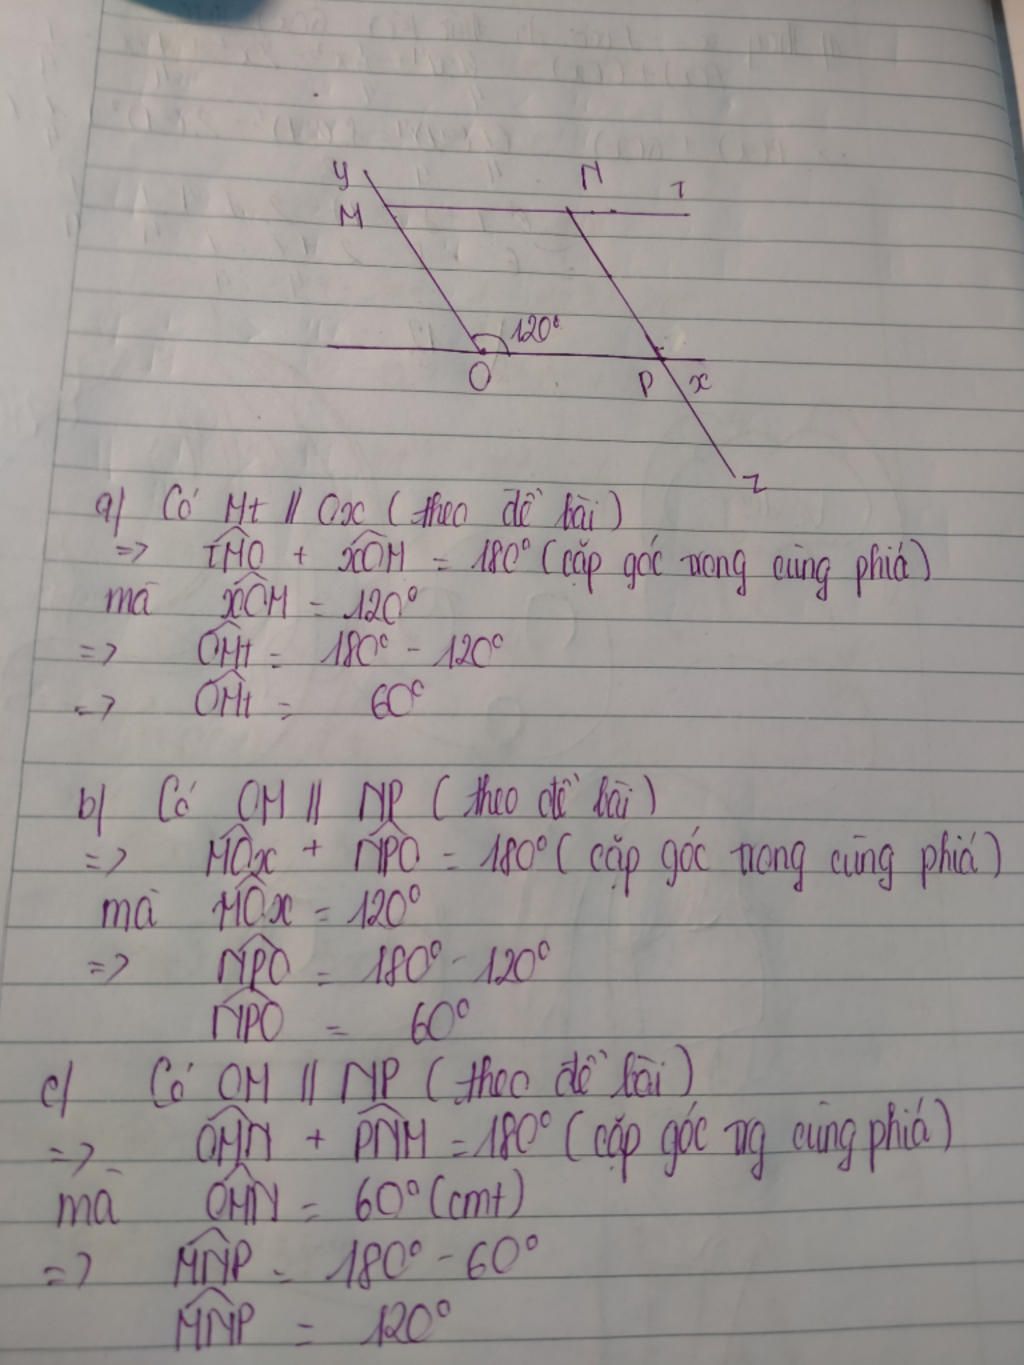 y
N
M
t
120°
O
P
x
z
a) Có Mt // Ox (theo đề bài)
=> tMO + xOM = 180° (cặp góc trong cùng phiá)
mà xOM = 120°
=> OMt = 180° - 120°
=> OMt = 60°
b) Có OM // NP (theo đề bài)
=> MOx + NPO = 180° (cặp góc trong cùng phiá)
mà MOx = 120°
=> NPO = 180° - 120°
NPO = 60°
c) Có OM // NP (theo đề bài)
=> OMN + PNM = 180° (cặp góc trg cùng phiá)
mà OMN = 60° (cmt)
=> MNP = 180° - 60°
MNP = 120°